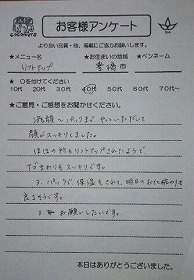 お客様アンケート
より良い品質・技、掲載にご協力お願いします。
★メニュー名 ★お住まいの地域 ★ペンネーム
リフトアップ 豊橋市
★○を付けてください
10代 20代 30代 40代 50代 60代 70代〜
★ご意見・ご感想をお聞かせください。
洗顔〜パックまでやっていただいて
顔がスッキリしました。
ほほの位置もリフトアップされたようで、
アゴまわりもスッキリです。
又、パックで保湿もされて、明日のお化粧のりも
良さそうです。
又、お願いしたいです。
本日はありがとうございました。